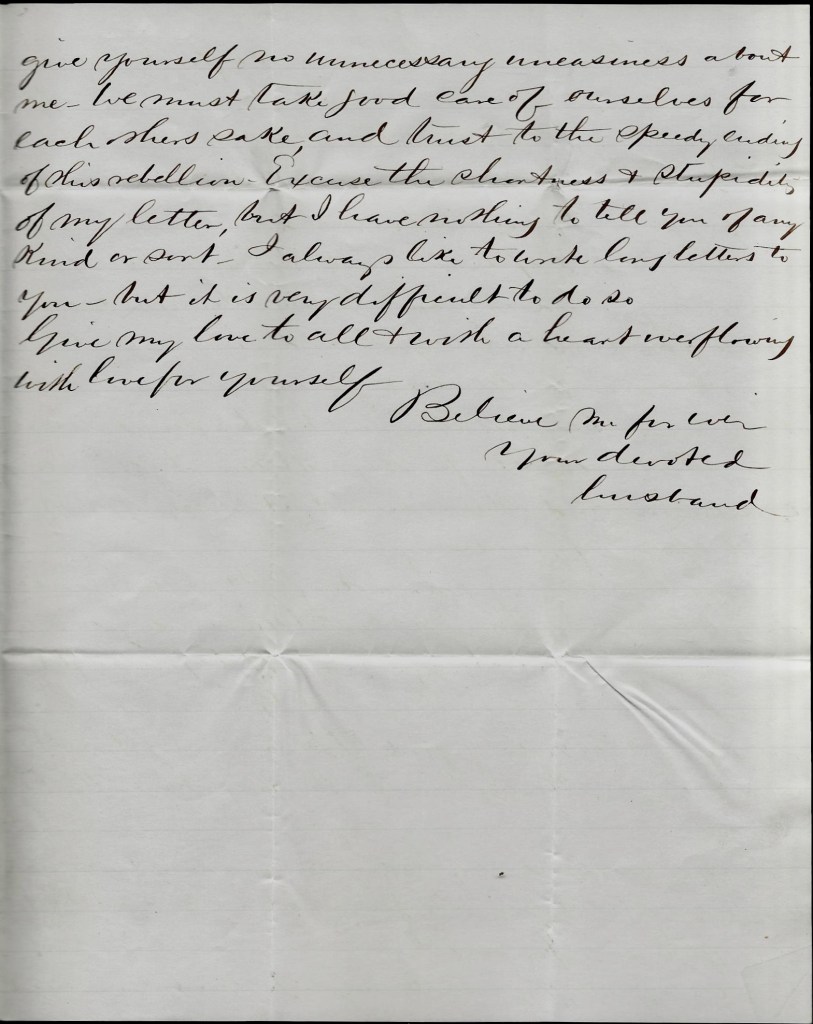 give yourself no unnecessary uneasiness about
me - We must take good care of ourselves for
each others sake, and trust to the speedy ending
of this rebellion - Excuse the shortness & stupidity
of my letter, but I have nothing to tell you of any
kind or sort - I always like to write long letters to
you - but it is very difficult to do so
Give my love to all & with a heart overflowing
with love for yourself
Believe me for ever
Your devoted
husband